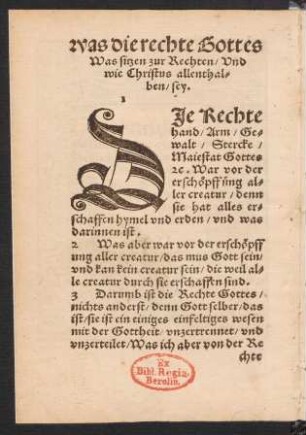 was die rechte Gottes
Was sitzen zur Rechten / Vnd
wie Christus allenthal-
ben / sey.
1
DJe Rechte
hand / Arm / Ge-
walt / Stercke /
Maiestat Gottes
ꝛc. War vor der
erschöpffung al-
ler creatur / denn
sie hat alles er-
schaffen hymel vnd erden / vnd was
darinnen ist.
2 Was aber war vor der erschöpff
ung aller creatur / das mus Gott sein /
vnd kan kein creatur sein / die weil al-
le creatur durch sie erschaffen sind.
3 Darumb ist die Rechte Gottes /
nichts anderst / denn Gott selber / das
ist / sie ist ein einiges einfeltiges wesen
mit der Gottheit / vnzertrennet / vnd
vnzerteilet / Was ich aber von der Re
chte
Ex
Bibl. Regia
Berolin.